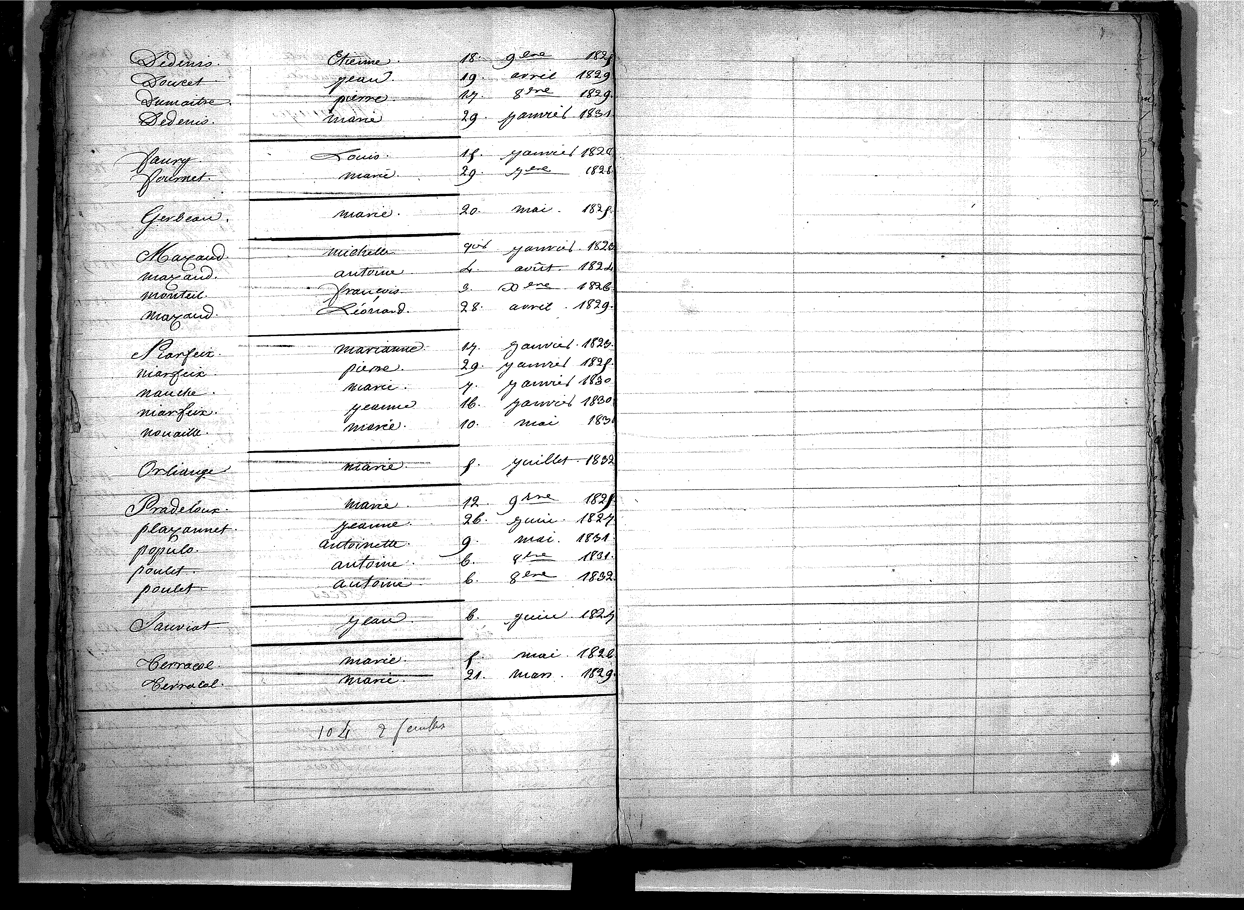 Dédenis. Etienne 18. 9bre 1825
Doucet Jean. 19. avril 1829
Dumaitre. pierre. 17. 8bre 1829.
Dédenis. marie 29. Janvier 1831
faury. Louis. 15. Janvier 1828
fournet. marie 29. 1828
Gerbeau. marie. 20. mai. 1825.
Mazaud. michelle Janvier. 1823
mazaud. antoine 4. août. 1824
monteil. françois 3. Xbre 1826.
mazaud. Léonard. 28. avril. 1829.
Niarfeix. marianne. 17. Janvier. 1823.
niarfeix. pierre. 29. Janvier 1825.
nauche. marie. 7. Janvier 1830
niarfeix. Jeanne 16. Janvier 1830
nouaille. marie. 10. mai 183
Orliange marie. 5. Juillet. 1832
Pradeloux. marie. 12. 9bre 1825
plazannet. Jeanne. 26. Juin. 1827.
populo. antoinette. 9. mai. 1831.
poulet. antoine. 6. 8bre 1831.
poulet. antoine 6. 8bre 1832
Sauviat Jean. 6. Juin 1825
Terracol marie. 5. mai. 1826
Terracol. marie. 21. mars. 1829.
104 2 feuilles